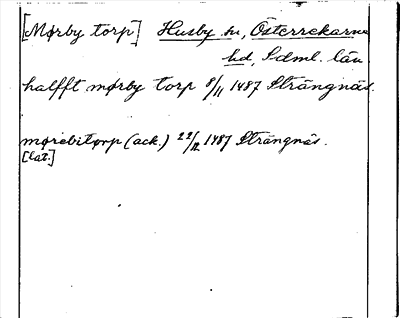 [Mørby torp] Husby sn, Österrekarne
hd, Sdml. län.
halfft mørby torp 8/11 1487 Strängnäs.
mørebitorp (ack.) 22/12 1487 Strängnäs.
[lat.]